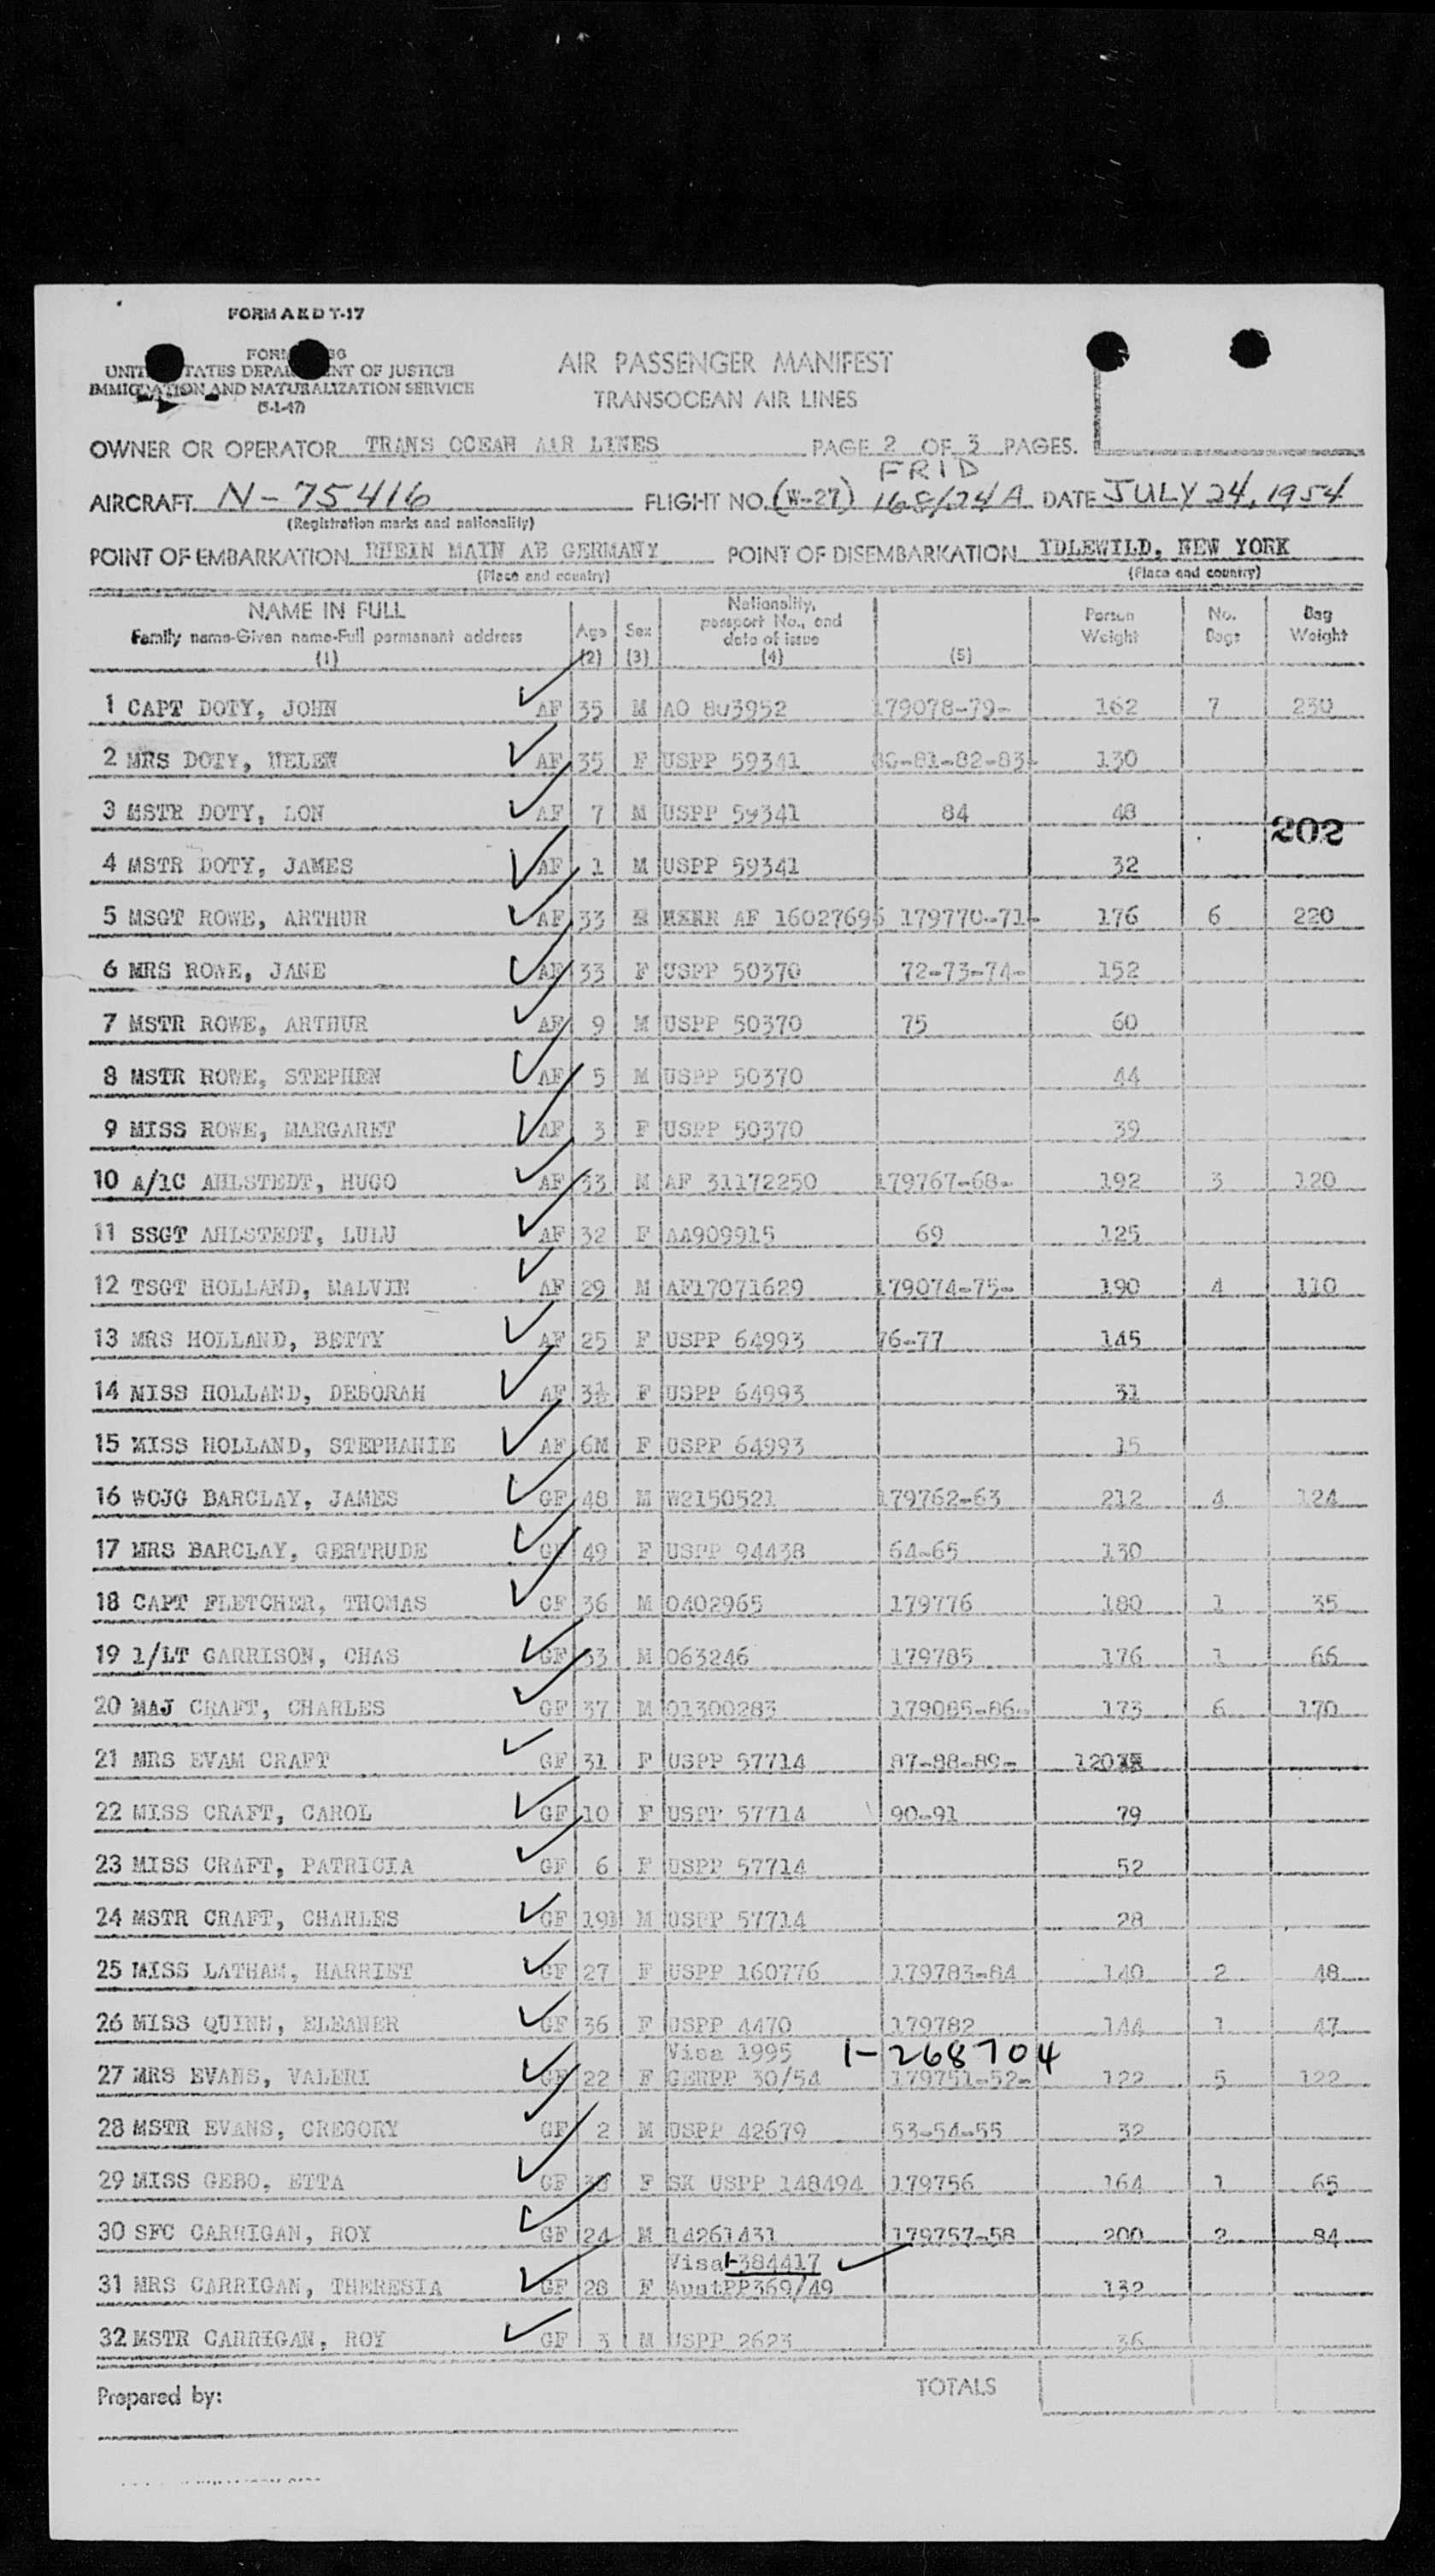 FORM A E D T-17
FORM
UNITED STATES DEPARTMENT OF JUSTICE
IMMIGRATION AND NATURALIZATION SERVICE
(5-1-47)
AIR PASSENGER MANIFEST
TRANSOCEAN AIR LINES
OWNER OR OPERATOR TRANS OCEAN AIR LINES PAGE 2 OF 3 PAGES.
FRID
AIRCRAFT N-75416 FLIGHT NO. (W-27) 168/24A DATE JULY 24, 1954
(Registration marks and nationality)
POINT OF EMBARKATION RHEIN MAIN AB GERMANY POINT OF DISEMBARKATION IDLEWILD, NEW YORK
(Place and country) (Place and country)
NAME IN FULL Family name-Given name-Full permanent address (1) Age (2) Sex (3) Nationality, passport No., and date of issue (4) (5) Person Weight No. Bags Bag Weight
1 CAPT DOTY, JOHN AF 35 M AO 803952 179078-79- 162 7 230
2 MRS DOTY, HELEN AF 35 F USPP 59341 80-81-82-83- 130
3 MSTR DOTY, LON AF 7 M USPP 59341 84 48
202
4 MSTR DOTY, JAMES AF 1 M USPP 59341 32
5 MSGT ROWE, ARTHUR AF 33 AF 16027696 179770-71- 176 6 220
6 MRS ROWE, JANE AF 33 F USPP 50370 72-73-74- 152
7 MSTR ROWE, ARTHUR AF 9 M USPP 50370 75 60
8 MSTR ROWE, STEPHEN AF 5 M USPP 50370 44
9 MISS ROWE, MARGARET AF 3 F USPP 50370 39
10 A/1C AHLSTEDT, HUGO AF 33 M AF 31172250 179767-68- 192 3 120
11 SSGT AHLSTEDT, LULU AF 32 F AA909915 69 125
12 TSGT HOLLAND, MALVIN AF 29 M AF17071629 179074-75- 190 4 110
13 MRS HOLLAND, BETTY AF 25 F USPP 64993 76-77 145
14 MISS HOLLAND, DEBORAH AF 3½ F USPP 64993 31
15 MISS HOLLAND, STEPHANIE AF 6M F USPP 64993 15
16 WOJG BARCLAY, JAMES GF 48 M W2150521 179762-63 212 4 124
17 MRS BARCLAY, GERTRUDE GF 49 F USPP 94438 64-65 130
18 CAPT FLETCHER, THOMAS GF 36 M 0402965 179776 180 1 35
19 1/LT GARRISON, CHAS GF 33 M 063246 179785 176 1 66
20 MAJ CRAFT, CHARLES GF 37 M 01300283 179085-86- 173 6 170
21 MRS EVAM CRAFT GF 31 F USPP 57714 87-88-89- 120
22 MISS CRAFT, CAROL GF 10 F USPP 57714 90-91 79
23 MISS CRAFT, PATRICIA GF 6 F USPP 57714 52
24 MSTR CRAFT, CHARLES GF 19M M USPP 57714 28
25 MISS LATHAM, HARRIET GF 27 F USPP 160776 179783-84 140 2 48
26 MISS QUINN, ELEANER GF 36 F USPP 4470 179782 144 1 47
Visa 1995 1-268704
27 MRS EVANS, VALERI GF 22 F GERPP 30/54 179751-52- 122 5 122
28 MSTR EVANS, GREGORY GF 2 M USPP 42679 53-54-55 32
29 MISS GEBO, ETTA GF F SK USPP 148494 179756 164 1 65
30 SFC CARRIGAN, ROY GF 24 M 14261431 179757-58 200 2 84
Visa 1-384417
31 MRS CARRIGAN, THERESIA GF 28 F AustPP369/49 132
32 MSTR CARRIGAN, ROY GF 3 M USPP 2623 36
Prepared by: TOTALS